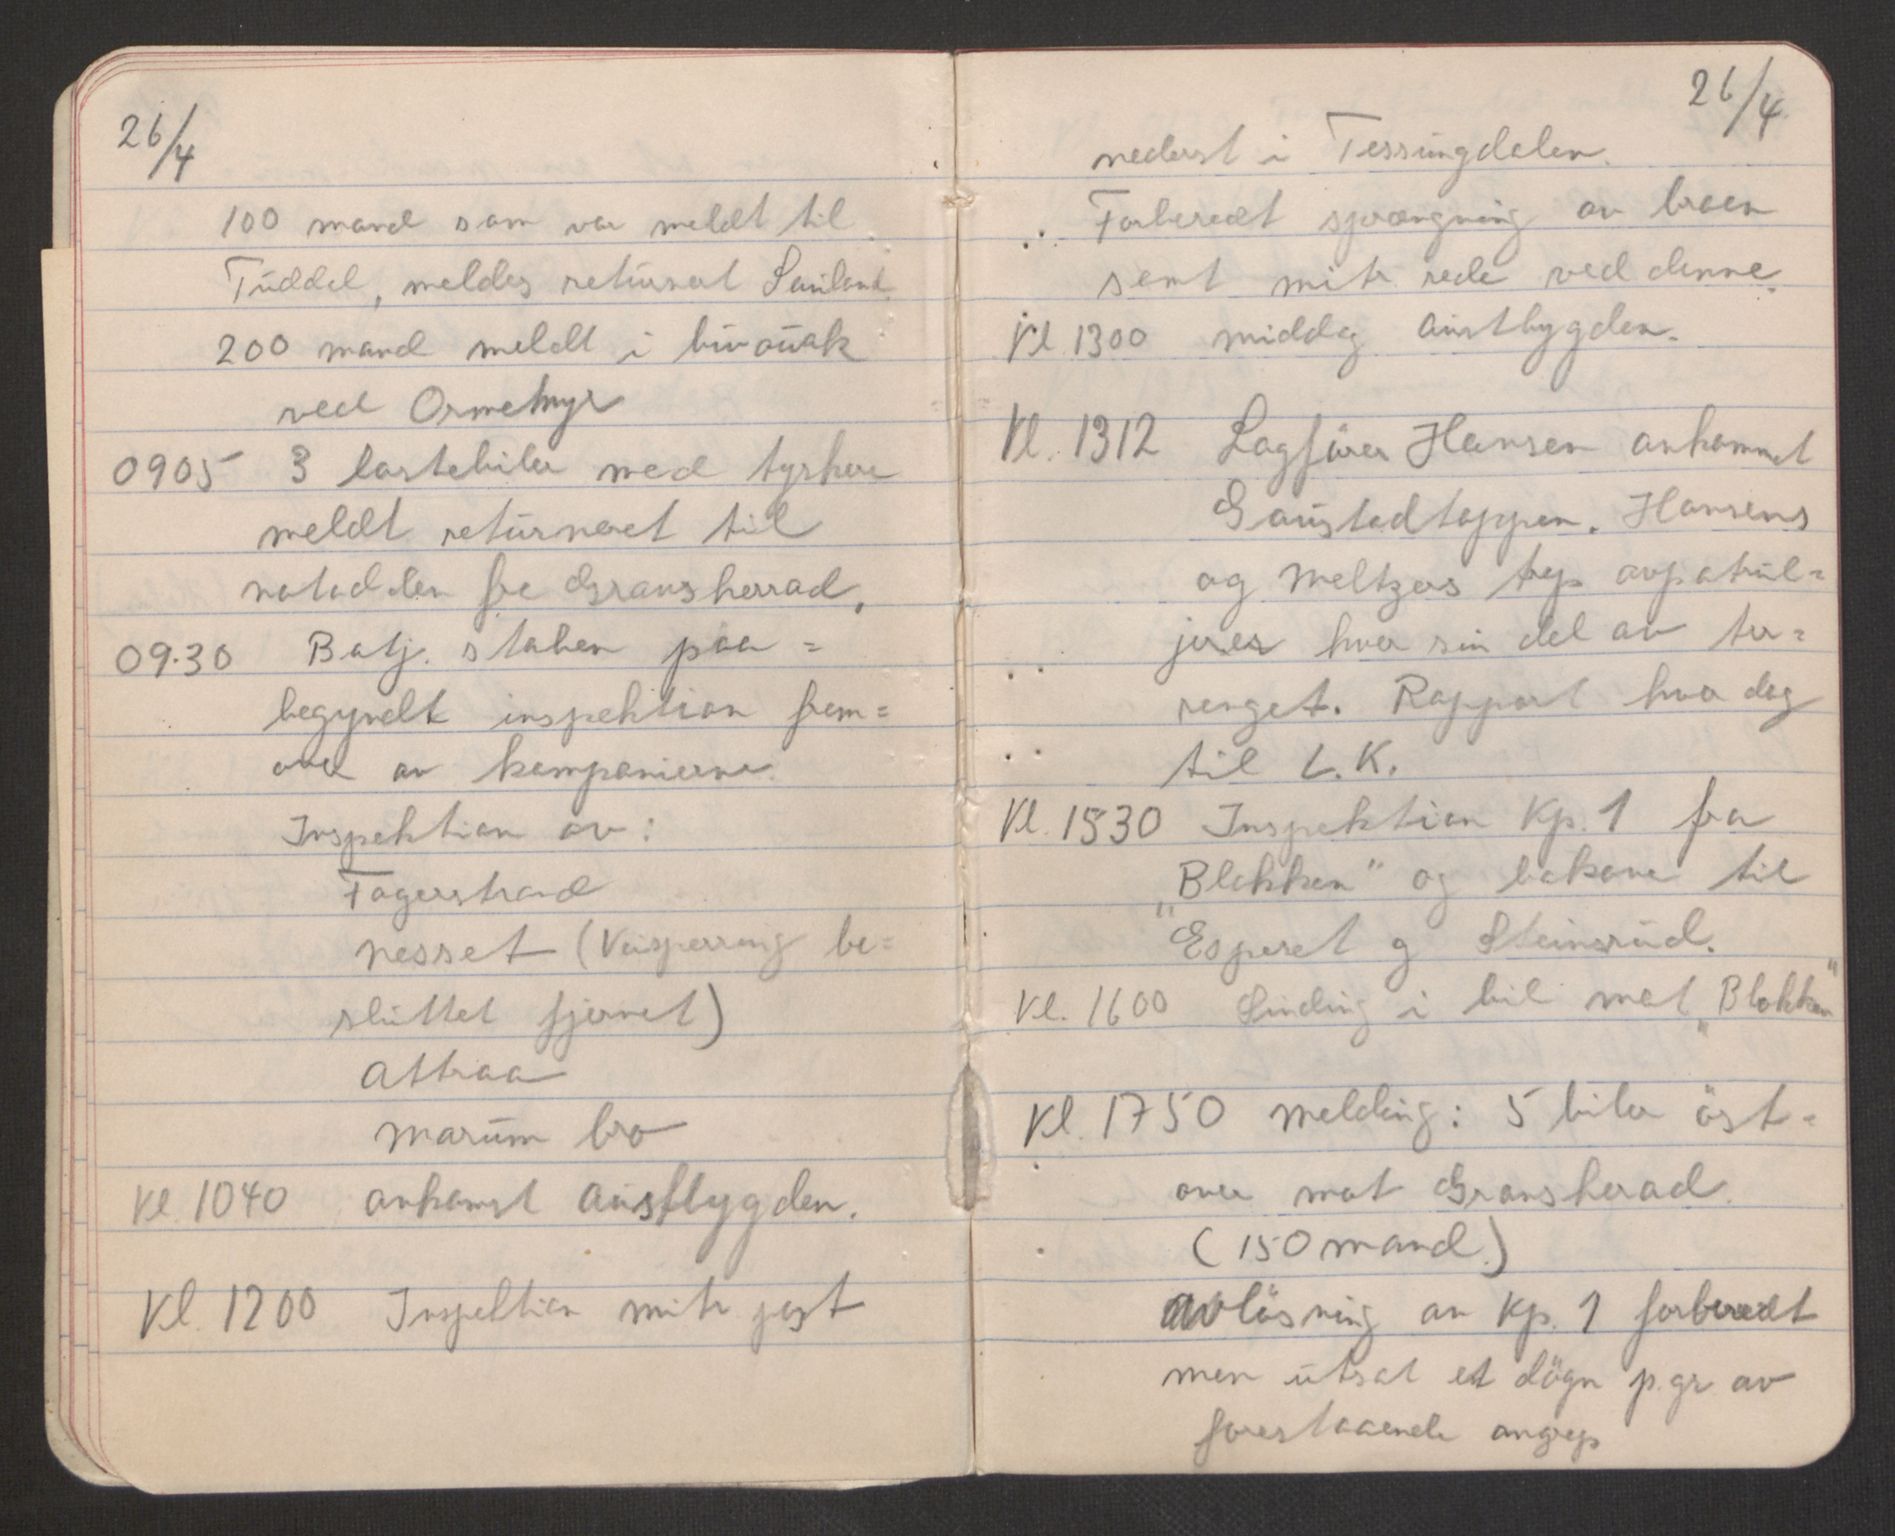 26/4
100 mand som var meldt til
Tuddel, meldes returnert Sauland.
200 mand meldt i bivouak
ved Ormemyr
0905 3 lastebiler med tyskere
meldt returneret til
notodden fra Gransherrad.
09.30 Batj. staben paa=
begyndt inspektion frem=
over av kompanierne.
Inspektion av:
Fagerstrand
nesset (Veisperring be=
sluttet fjernet)
Attraa
Marum bro
Kl 1040 ankomst Austbygden.
Kl. 1200 Inspektion mitr. post
26/4
nederst i Tessungdalen.
Forberedt sprængning av broen
samt mitr. rede ved denne.
Kl. 1300 middag Austbygden.
Kl. 1312 Lagfører Hansen ankommet
Gaustadtoppen. Hansens
og Meltzers trp avpatrul=
jerer hver sin del av ter=
renget. Rapport hver dag
til L.K.
Kl. 1530 Inspektion Kp. 1 fra
"Blokken" og bakover til
"Esperet og Steinsrud.
Kl. 1600 Sinding i bil mot "Blokken"
Kl. 1750 melding: 5 biler öst=
over mot Gransherad.
(150 mand.)
Avlösning av Kp. 1 forberedt
men utsat et dögn p.gr. av
forestaaende angrep